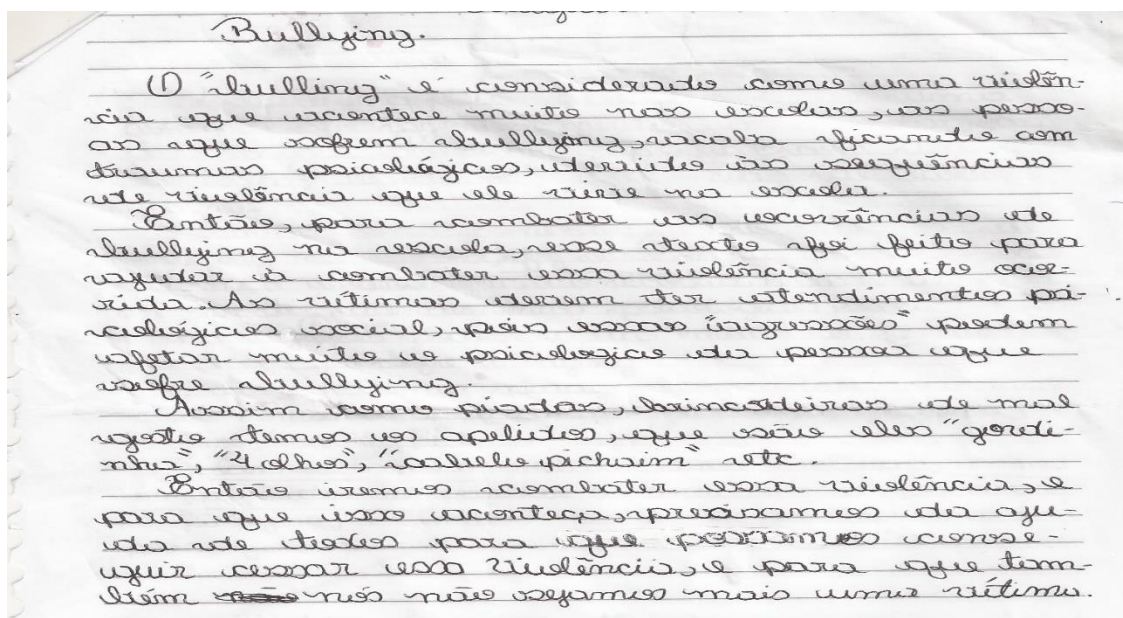 Bullying.
O "bulling" é considerado como uma violên-
cia que acontece muito nas escolas, as pesso-
as que sofrem bullying, acaba ficando com
traumas psicológicos, devido às sequências
de violência que ele vive na escola.
Então, para combater as ocorrências de
bullying na escola, esse texto foi feito para
ajudar à combater essa violência muito ocor-
rida. As vítimas devem ter atendimentos psi-
cológicos social, pois essas "agressões" podem
afetar muito o psicologico da pessoa que
sofre bullying.
Assim como piadas, brincadeiras de mal
gosto temos os apelidos, que são eles "gordi-
nha", "4 olhos", "cabelo pichaim" etc.
Então iremos combater essa violência, e
para que isso aconteça, precisamos da aju-
da de todos para que possamos conse-
guir cessar essa violência, e para que tam-
bém nós não sejamos mais uma vítima.